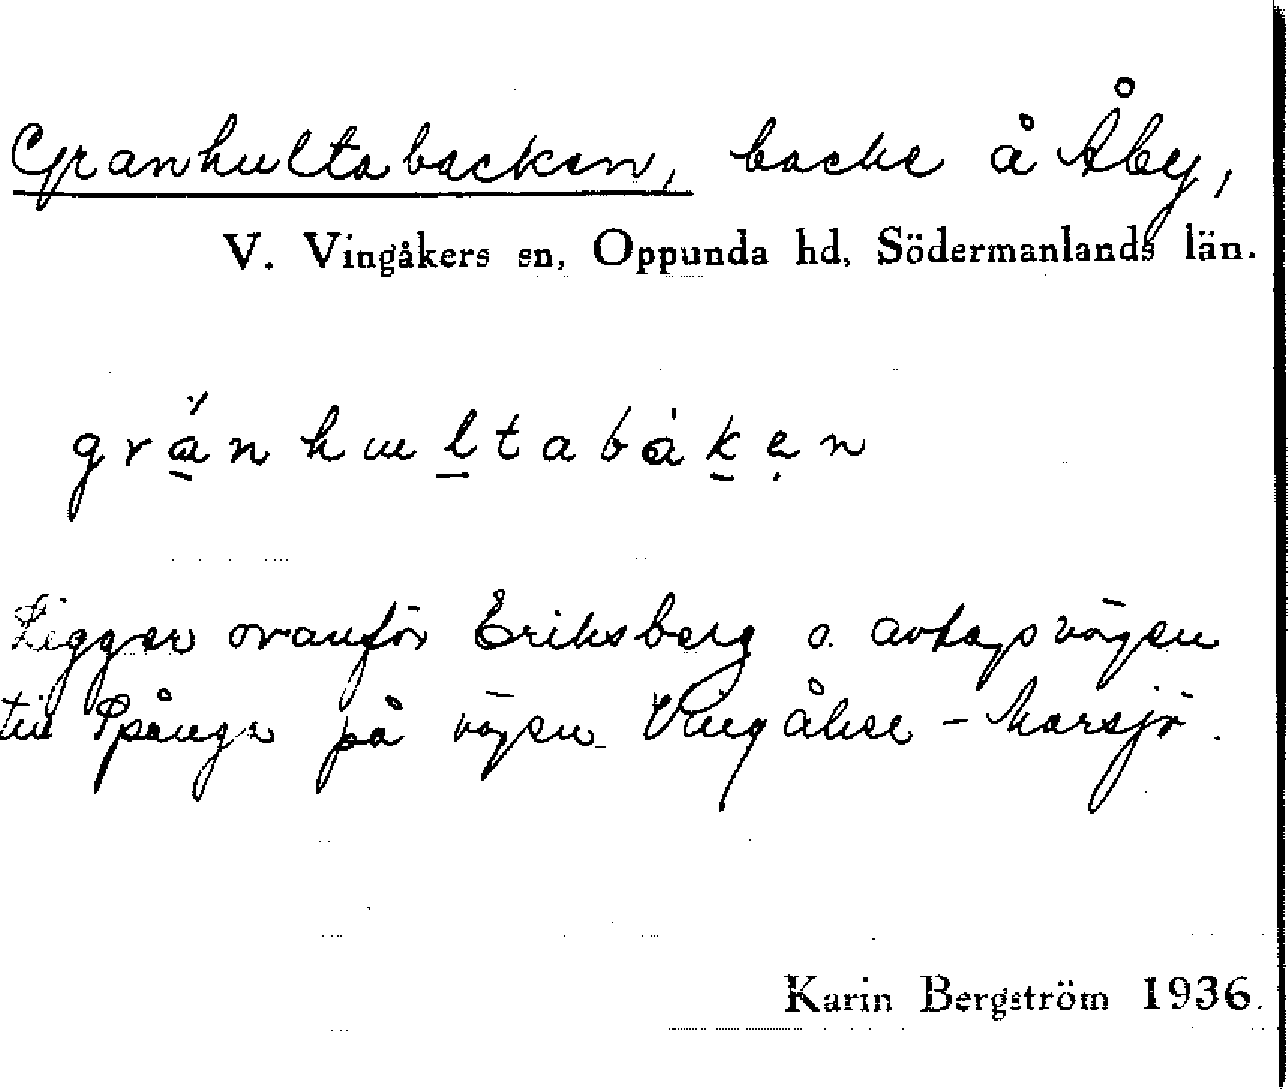 Granhultabacken, backe å Åby,
V. Vingåkers sn, Oppunda hd, Södermanlands län.
granhultabaken
Ligger ovanför Eriksberg o. avtagsvägen
till Spånga på vägen Vingåker - Marsjö.
Karin Bergström 1936.